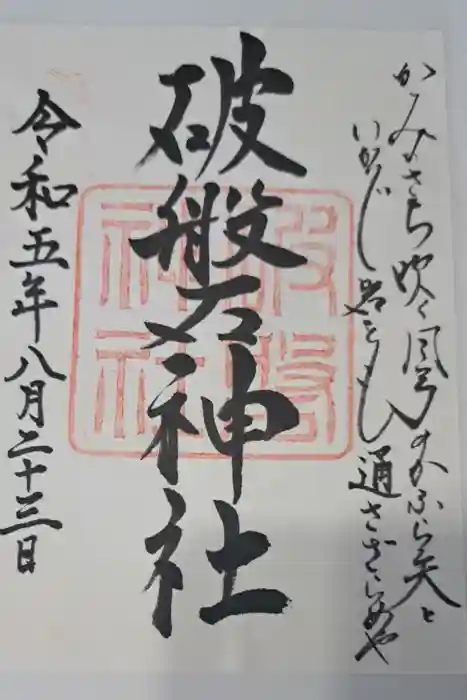 かみのさち吹く風弓のかぶら矢と
いかじし岩をもし通さざらめや
破磐神社
令和五年八月二十三日